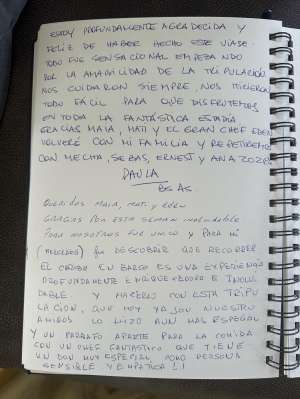 ESTOY PROFUNDAMENTE AGRADECIDA Y
FELIZ DE HABER HECHO ESTE VIAJE.
TODO FUE SENSACIONAL EMPEZANDO
POR LA AMABILIDAD DE LA TRIPULACIÓN
NOS CUIDARON SIEMPRE, NOS HICIERON
TODO FACIL PARA QUE DISFRUTEMOS
EN TODA LA FANTÁSTICA ESTADÍA
GRACIAS MAIA, MATI Y EL GRAN CHEF EDEN
VOLVERÉ CON MI FAMILIA Y REPETIREMOS
CON MECHA, SEBAS, ERNEST Y ANA
PAULA
BS AS.
Queridos Maia, Mati y Eden
GRACIAS POR ESTA SEMANA INOLVIDABLE
PARA NOSOTROS FUE UNICO Y PARA MI
(MERCEDES) fue DESCUBRIR QUE RECORRER
EL CARIBE EN BARCO ES UNA EXPERIENCIA
PROFUNDAMENTE ENRIQUECEDORA E INOLVI
DABLE. Y HACERLO CON ESTA TRIPU
LACION, QUE HOY YA SON NUESTROS
AMIGOS LO HIZO AUN MAS ESPECIAL
Y UN PARRAFO APARTE PARA LA COMIDA
CON UN CHEF FANTASTICO QUE TIENE
UN DON MUY ESPECIAL, COMO PERSONA
SENSIBLE Y EMPATICA !!